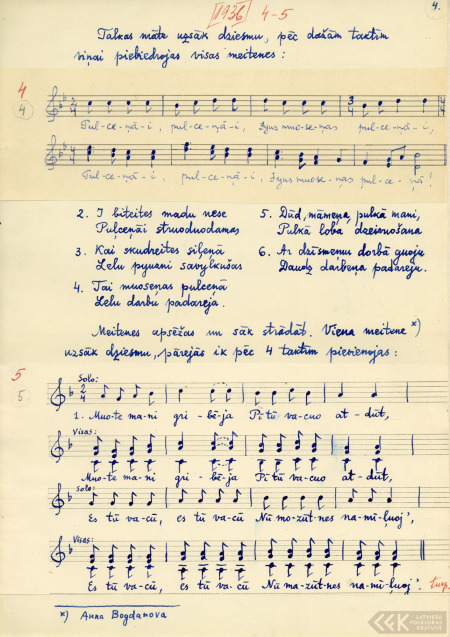 1936 4-5
4.
Talkas māte uzsāk dziesmu, pēc dažām taktīm
viņai piebiedrojas visas meitenes:
4
4
Pul-ce-ņā-i, pul-ce-ņā-i, Syus muo-se-ņas pul-ce-ņā-i,
Pul-ce-ņā-i, pul-ce-ņā-i, Syus muose-ņas pul-ce-ņā!
2. I biteites madu nese
Puļceņāi struoduodamas
3. Kai skudreites siļeņā
Lelu pyuəni savylkušas
4. Tai muoseņas pulceņā
Lelu darbu padareja.
5. Dūd, māmeņa, pulkā mani,
Pulkā loba dzeivuošona
6. Ar dzīsmeņus dorbā guoju
Daudz darbeņa padareju.
Meitenes apsēžas un sāk strādāt. Viena meitene x)
uzsāk dziesmu, pārejās ik pēc 4 taktīm pievienojas:
5
5
Solo:
1. Muo-te ma-ni gri-bē-ja Pi tū va-cuo at-dūt,
Visas:
Muo-te ma-ni gri-bē-ja Pi tū va-cuo at-dūt,
Solo:
Es tū va-cū, es tū va-cū Nū mo-zūt-nes na-mī-ļuoj',
Visas:
Es tū va-cū, es tū va-cū Nū ma-zūt-nes na-mī-ļuoj'
turp.
x) Anna Bogdanova
LATVIEŠU
FOLKLORAS
KRĀTUVE